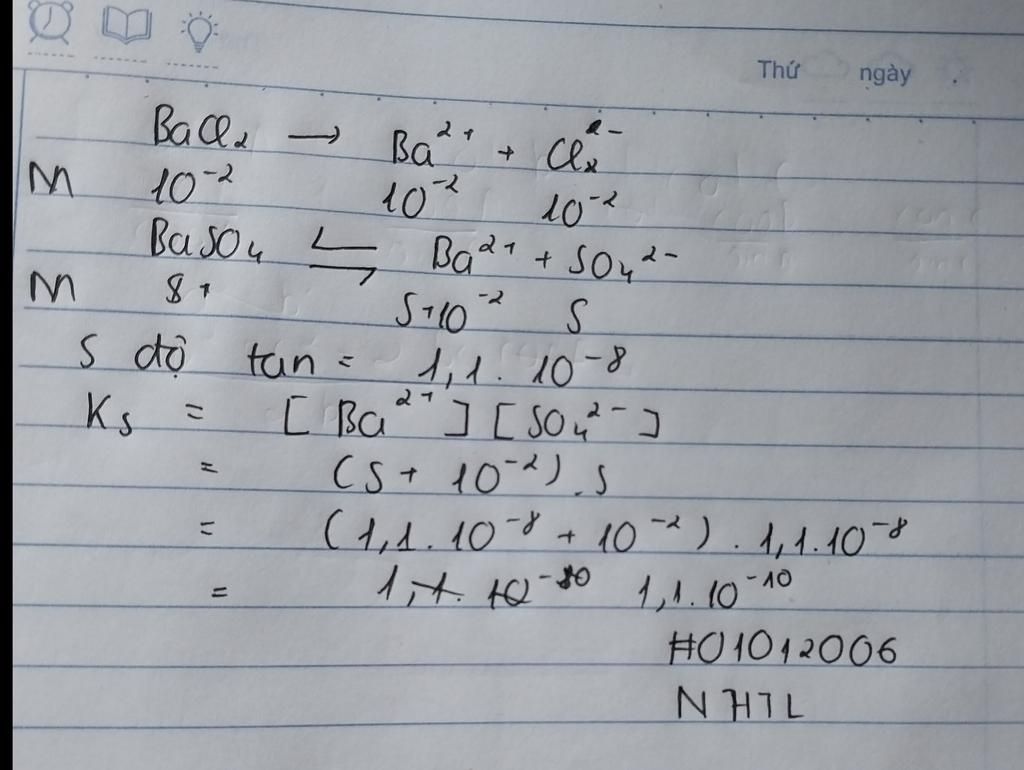 Thứ ngày .
BaCl₂ → Ba²⁺ + Cl₂²⁻
M 10⁻² 10⁻² 10⁻²
BaSO₄ ⇌ Ba²⁺ + SO₄²⁻
M S+10⁻² S
S độ tan = 1,1. 10⁻⁸
Ks = [Ba²⁺] [SO₄²⁻]
= (S + 10⁻²).S
= (1,1.10⁻⁸ + 10⁻²). 1,1.10⁻⁸
= 1,1.10⁻¹⁰
#01012006
NHTL